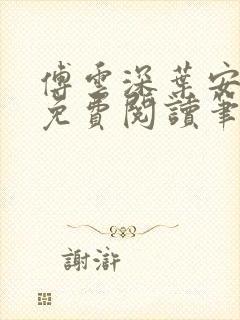 傅雲深葉安
免費閱讀筆
謝滸